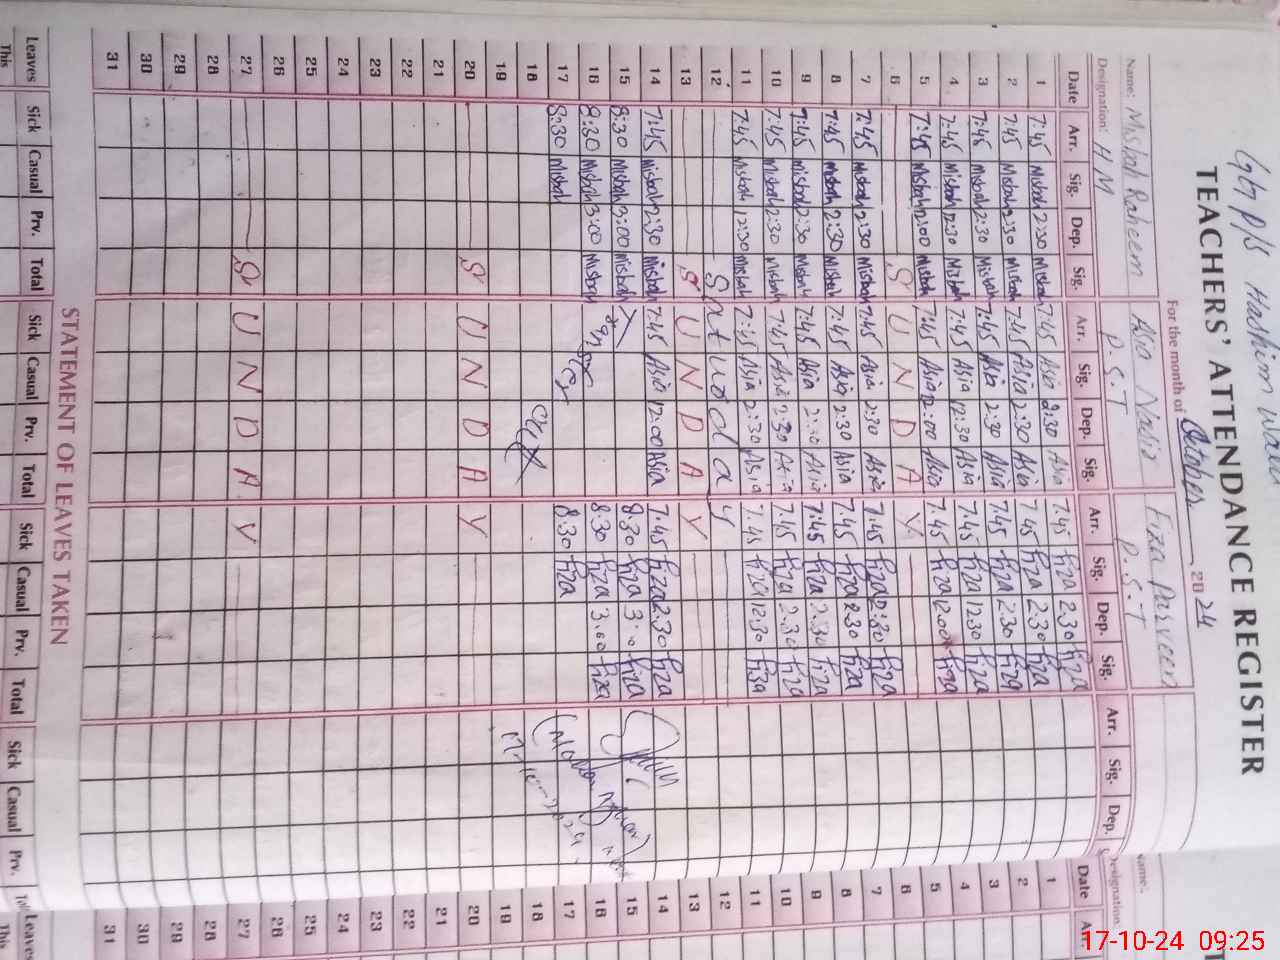 GGP/S Hashim
TEACHERS' ATTENDANCE REGISTER
For the month of October 2024
Name: Misbah Raheem Asia Nasir Fiza Parveen
Designation: H M P.S.T P.S.T
Date Arr. Sig. Dep. Sig. Arr. Sig. Dep. Sig. Arr. Sig. Dep. Sig. Arr. Sig. Dep.
1 7:45 Misbah 2:30 Misbah 7:45 Asia 2:30 Asia 7.45 fiza 2.30 fiza
2 7:45 Misbah 2:30 Misbah 7:45 Asia 2:30 Asia 7.45 fiza 2.30 fiza
3 7:45 Misbah 2:30 Misbah 7:45 Asia 2:30 Asia 7.45 fiza 2.30 fiza
4 7:45 Misbah 12:30 Misbah 7:45 Asia 12:30 Asia 7.45 fiza 12.30 fiza
5 7:45 Misbah 12:00 Misbah 7:45 Asia 12:00 Asia 7.45 fiza 12.00 fiza
6 S U N D A Y
7 7:45 Misbah 2:30 Misbah 7:45 Asia 2:30 Asia 7.45 fiza 2:30 fiza
8 7:45 Misbah 2:30 Misbah 7:45 Asia 2:30 Asia 7.45 fiza 2.30 fiza
9 7:45 Misbah 2:30 Misbah 7:45 Asia 2:30 Asia 7.45 fiza 2.30 fiza
10 7:45 Misbah 2:30 Misbah 7:45 Asia 2:30 Asia 7.45 fiza 2.30 fiza
11 7:45 Misbah 12:30 Misbah 7:45 Asia 2:30 Asia 7.45 fiza 12.30 fiza
12 Saturday
13 S U N D A Y
14 7:45 Misbah 2:30 Misbah 7:45 Asia 12:00 Asia 7.45 fiza 2.30 fiza
15 8:30 Misbah 3:00 Misbah 8.30 fiza 3:0 fiza
16 8:30 Misbah 3:00 Misbah 8.30 fiza 3.00 fiza
17 8:30 Misbah 8.30 fiza
18
19
20 S U N D A Y
21
22
23
24
25
26
27 S U N D A Y
28
29
30
31
STATEMENT OF LEAVES TAKEN
Leaves Sick Casual Prv. Total Sick Casual Prv. Total Sick Casual Prv. Total Sick Casual Prv.
This
Date Arr.
1
2
3
4
5
6
7
8
9
10
11
12
13
14
15
16
17
18
19
20
21
22
23
24
25
26
27
28
29
30
31
Leaves
This
17-10-24 09:25